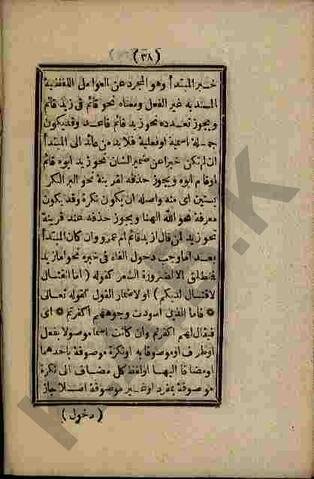 (٣٨)
خبر المبتدأ وهو المجرد عن العوامل اللفظية
المسند به غير الفعل ومعناه نحو قائم فى زيد قائم
ويجوز تعدده نحو زيد قائم قاعد وقد يكون
جملة اسمية او فعلية فلا بد من عائد الى المبتدأ
ان لم تكن خبرا عن ضمير الشان نحو زيد ابوه قائم
او قام ابوه ويجوز حذفه لقرينة نحو البر الكر
بستين اى منه واصله ان يكون نكرة وقد يكون
معرفة نحو الله الهنا ويجوز حذفه عند قرينة
نحو زيد لمن قال ازيد قائم ام عمرو وان كان المبتدأ
بعد اما وجب دخول الفاء فى خبره نحو اما زيد
فمنطلق الا لضرورة الشعر كقوله (اما القتال
لا قتال لديكم) او لاضمار القول كقوله تعالى
* فاما الذين اسودت وجوههم اكفرتم * اى
فيقال لهم اكفرتم وان كانت اسما موصولا بفعل
او ظرف او موصوفا به او نكرة موصوفة باحدهما
او مضافا اليها او لفظ كل مضاف الى نكرة
موصوفة بمفرد او غير موصوفة اصلا جاز
(دخول)